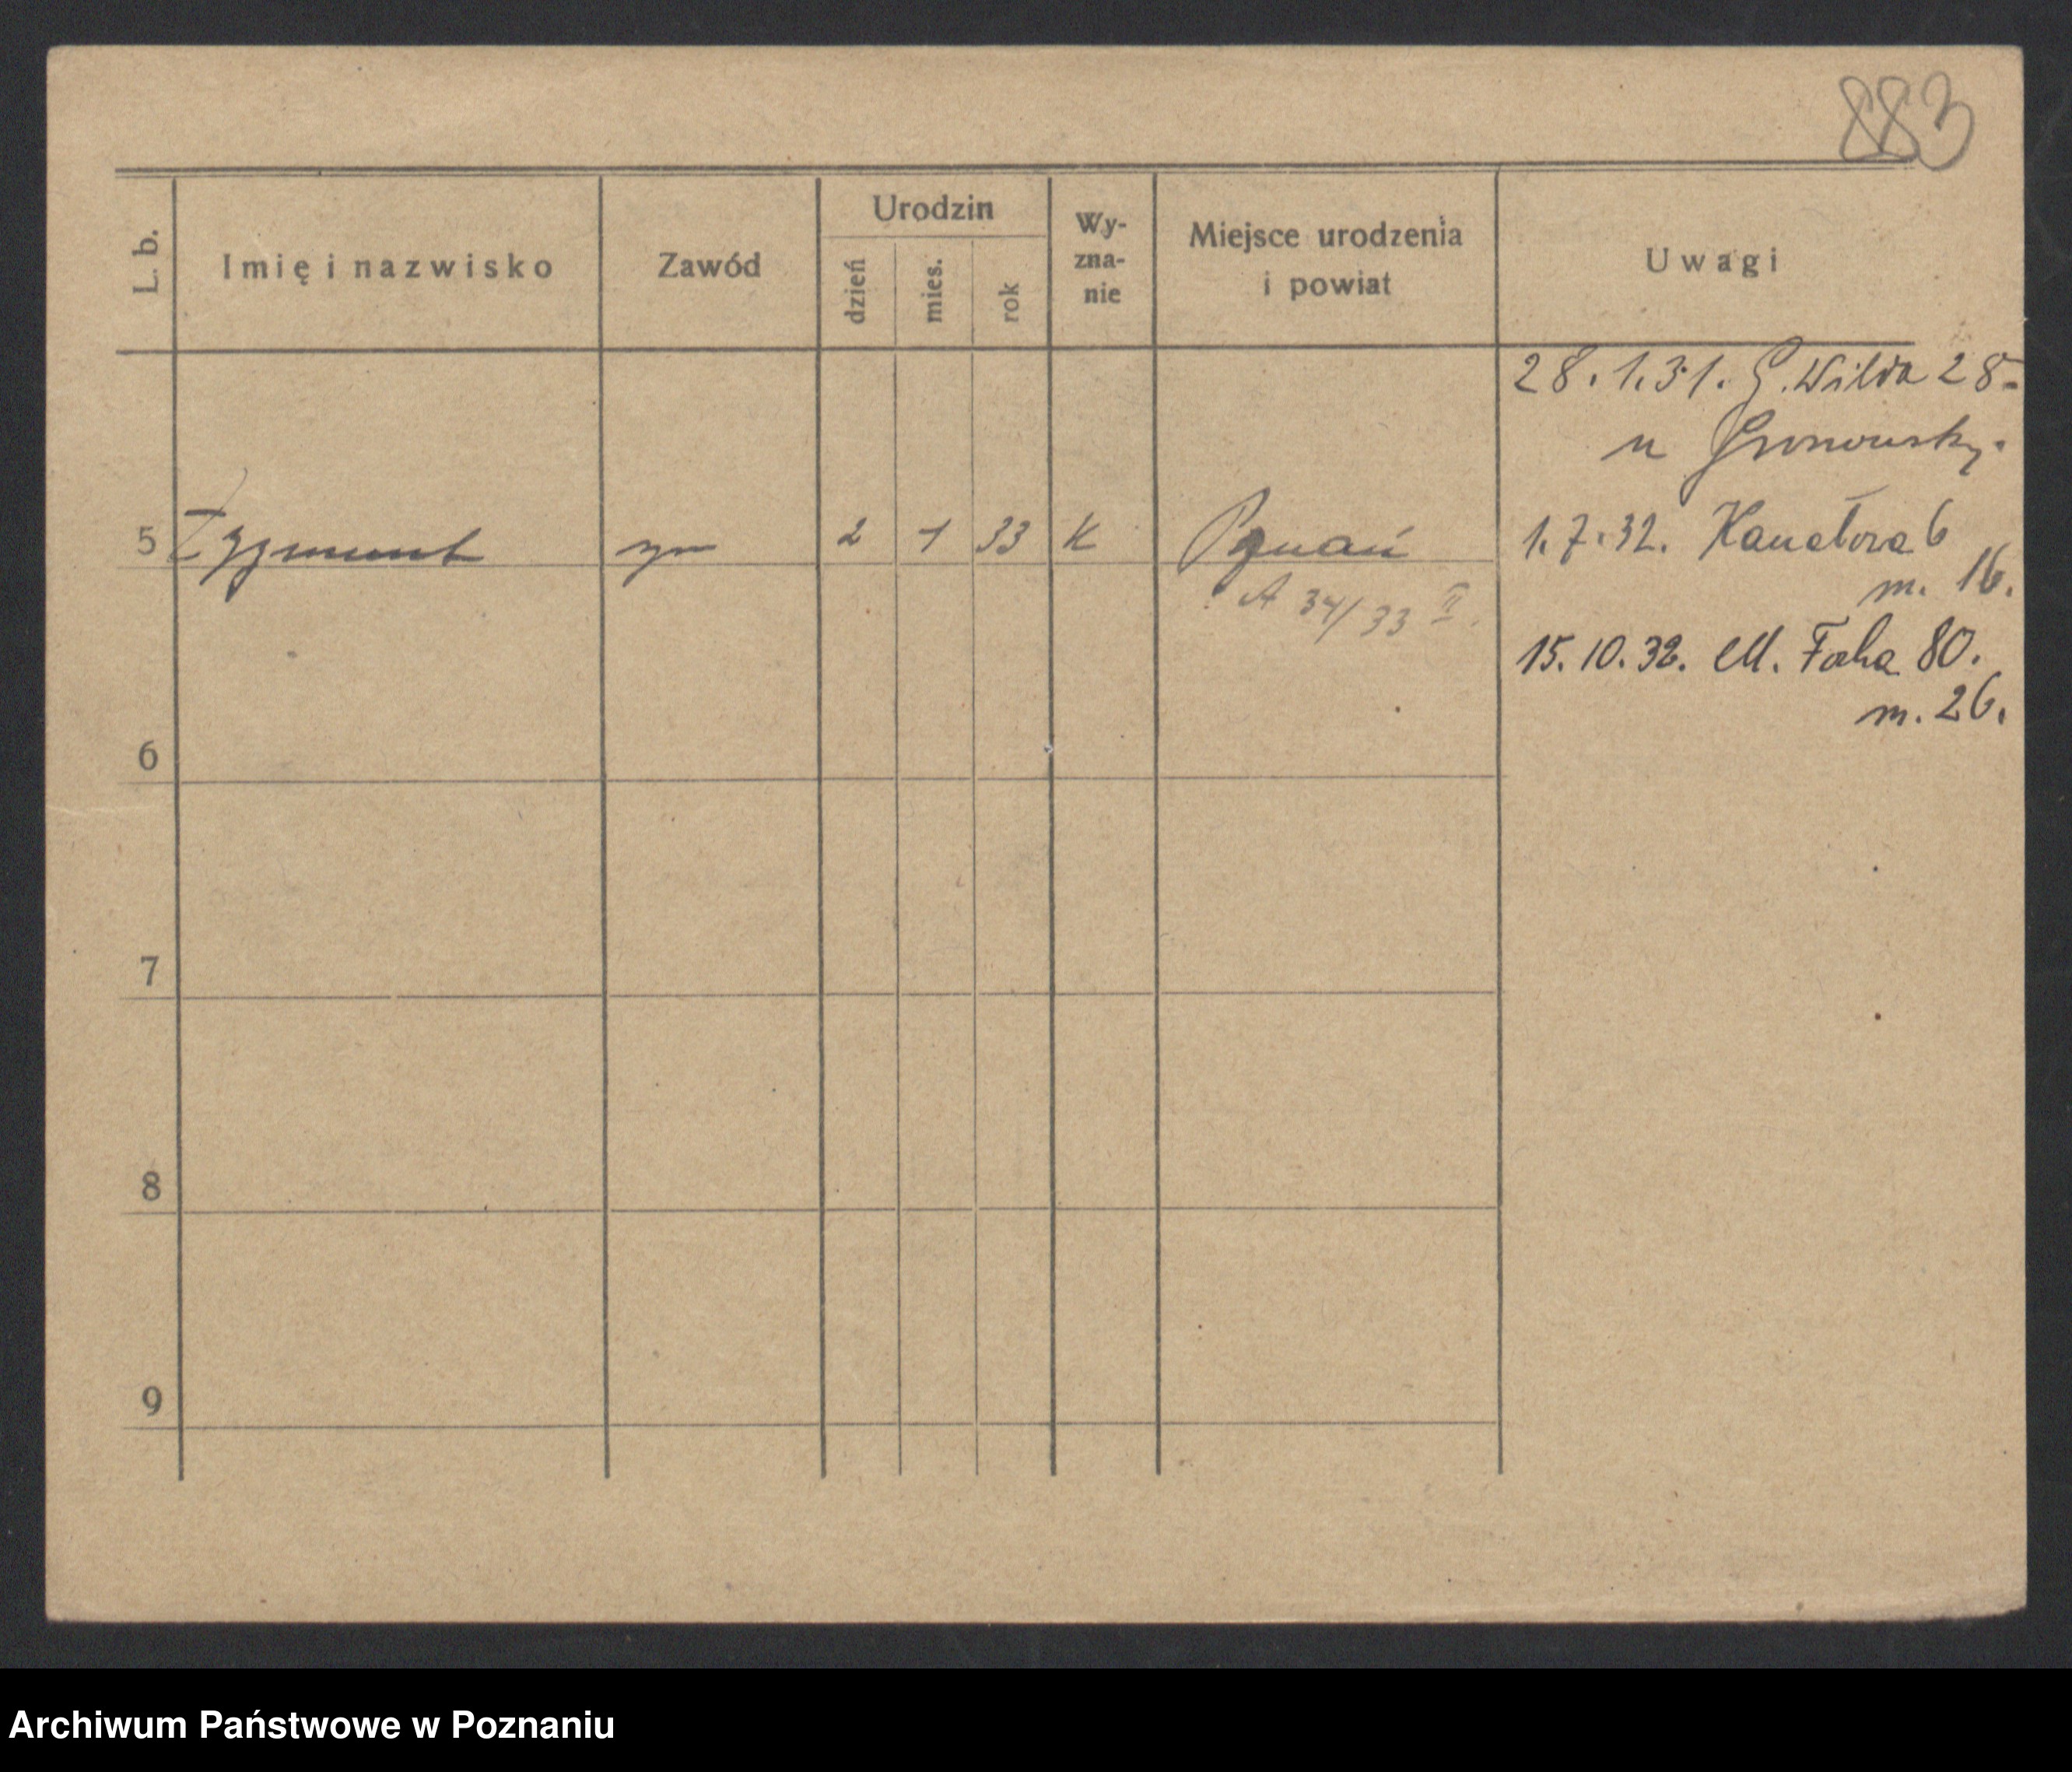 883
L. b.
Imię i nazwisko
Zawód
Urodzin
dzień
mies.
rok
Wy-
zna-
nie
Miejsce urodzenia
i powiat
Uwagi
28. 1. 31. G. Wilda 28.
u
1. 7. 32. Kanałowa 6
m. 16.
5 Zygmunt syn 2 1 33 K Poznań
A 34/33 II.
15. 10. 32. M. Focha 80.
m. 26.
6
7
8
9
Archiwum Państwowe w Poznaniu